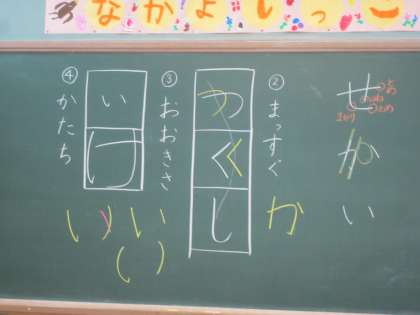 なかよしっこ
せかい
②まっすぐ
か
つくし
③おおきさ
い
いけ
④かたち
い